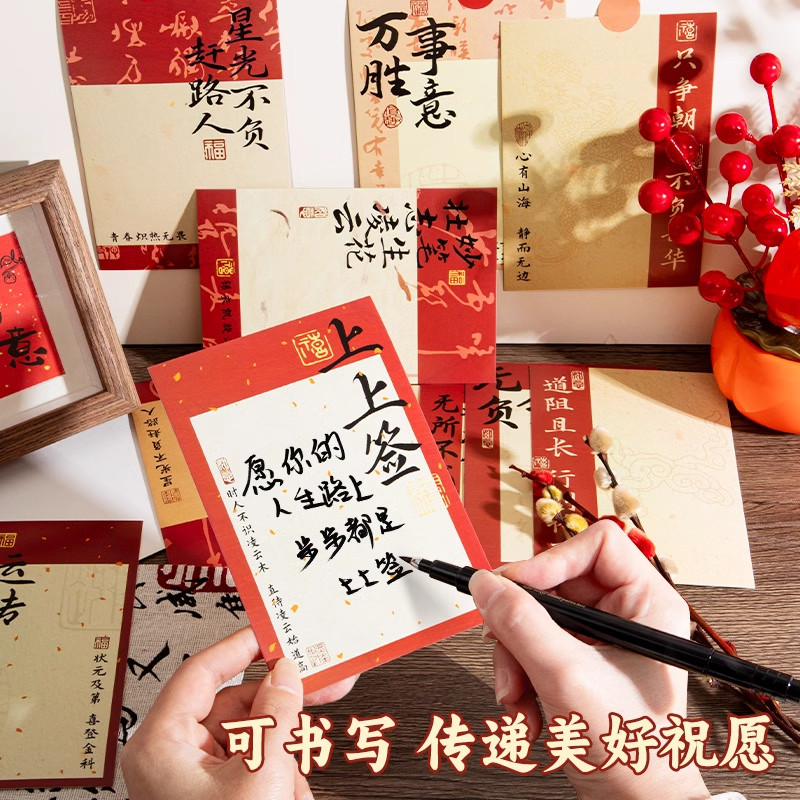 星光不负
赶路人
福
青春炽热无畏
事意
万胜
只争朝
不负
华
心有山海 静而无边
妙笔生花
壮志凌云
意
上上签
愿你的
人生路上
步步都是
上上签
时人不识凌云木 直待凌云始道高
星光不负赶路人
无所不
无负
道阻且长 行
福
状元及第 喜登金科
可书写 传递美好祝愿